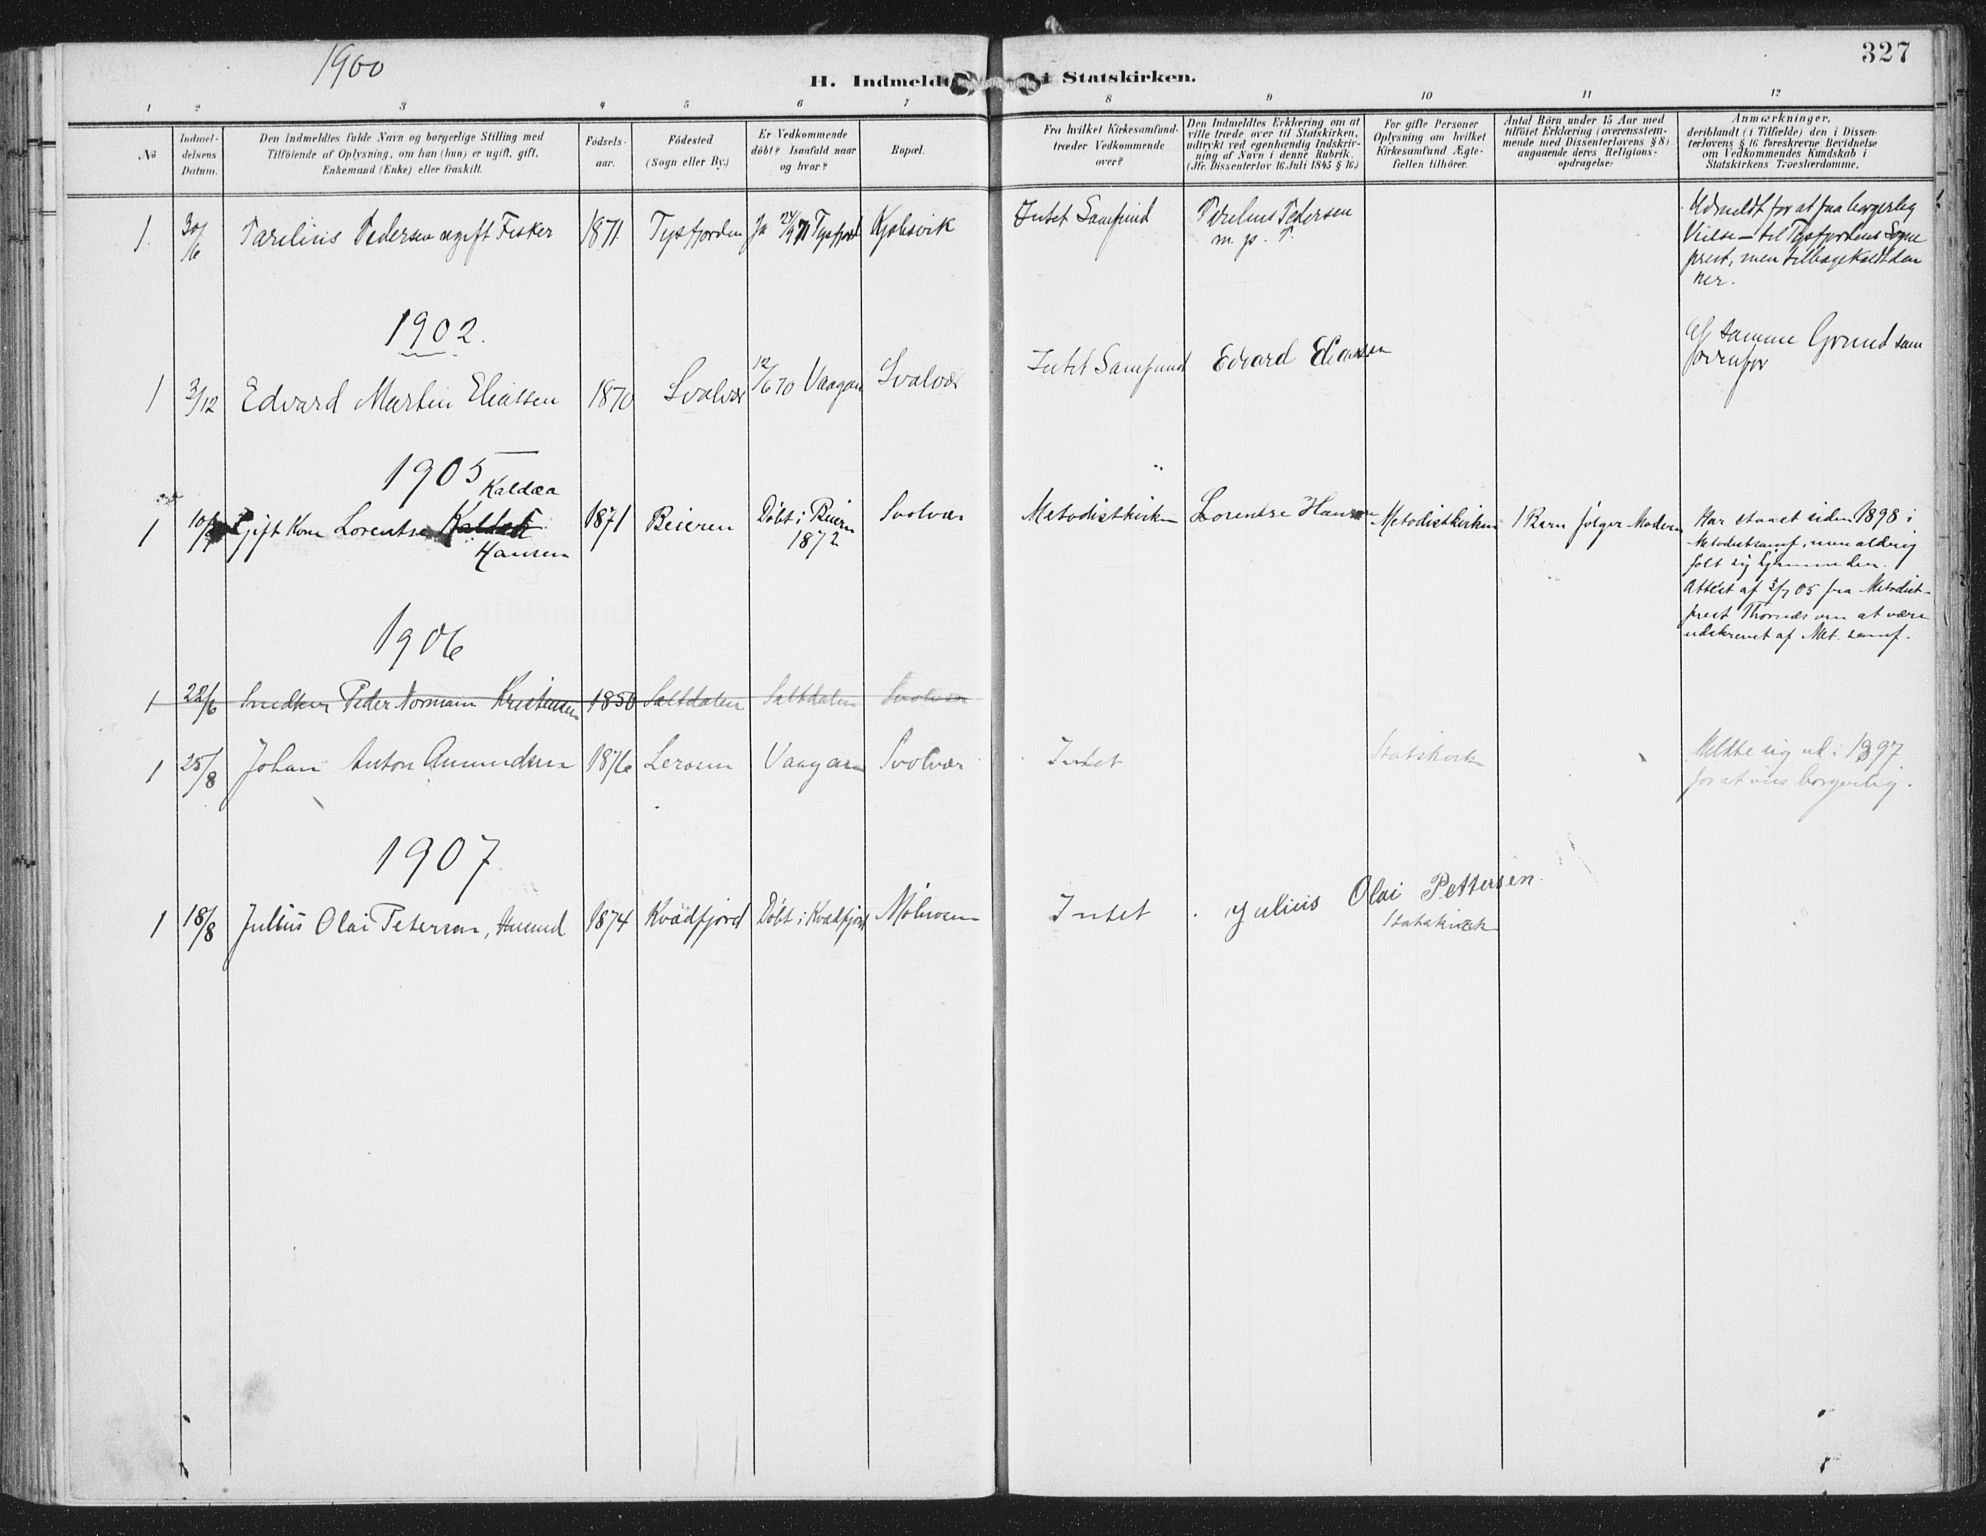 1900
327
H. Indmeldte i Statskirken.
1 2 3 4 5 6 7 8 9 10 11 12
No
Indmel-
delsens
Datum.
Den Indmeldtes fulde Navn og borgerlige Stilling med
Tilföiende af Oplysning, om han (hun) er ugift, gift,
Enkemand (Enke) eller fraskilt.
Födsels-
aar.
Födested
(Sogn eller By.)
Er Vedkommende
döbt? Isaafald naar
og hvor?
Bopæl.
Fra hvilket Kirkesamfund
træder Vedkommende
over?
Den Indmeldtes Erklæring om at
ville træde over til Statskirken,
udtrykt ved egenhændig Indskriv-
ning af Navn i denne Rubrik.
(Jfr. Dissenterlov 16. Juli 1845 § 16.)
For gifte Personer
Oplysning om hvilket
Kirkesamfund Ægte-
fællen tilhörer.
Antal Börn under 15 Aar med
tilföiet Erklæring (overensstem-
mende med Dissenterlovens § 8)
angaaende deres Religions-
opdragelse:
Anmærkninger,
deriblandt (i Tilfælde) den i Dissen-
terlovens § 16 foreskrevne Bevidnelse
om Vedkommendes Kundskab i
Statskirkens Troeslærdomme.
1. 30/6 Parelius Pedersen ugift Fisker 1871. Tysfjorden Ja 24/9 71 Tysfjord Kjøbsvik Intet Samfund Parelius Pedersen
m. p. P.
Udmeldt for at faa borgerlig
Vielse – til Tysfjordens Sogne
prest, men tilbagekaldt den
her.
1902.
1 3/12 Edvard Martin Eliassen 1870 Svolvær 12/6 70 Vaagan Svolvær Intet Samfund Edvard Eliassen
Af samme Grund som
ovenfor
1905
Kaldaa
1 10/7 Gift Kone Lorentse
Hansen
1871 Beieren Døbt i Beiern
1872
Svolvær Metodistkirken Lorentse Hansen Metodistkirken 1 Barn følger Moderen
Har staaet siden 1898 i
Metodistsamf., men aldrig
følt sig hjemme der.
Attest af 3/7 05 fra Metodist-
prest Thornæs om at være
udskrevet af Met. samf.
1906
1 22/6 Snedker Peder Normann Kristensen 1850 Saltdalen Saltdalen Svolvær
1 25/8 Johan Anton Amundsen 1876 Leroen Vaagan Svolvær Intet Statskirken
Meldte sig ud i 1897
for at vies borgerlig.
1907
1 18/8 Julius Olai Petersen, Husmd 1874 Kvædfjord Døbt i Kvædfjord Molvosen Intet Julius Olai Pettersen.
Statskirken